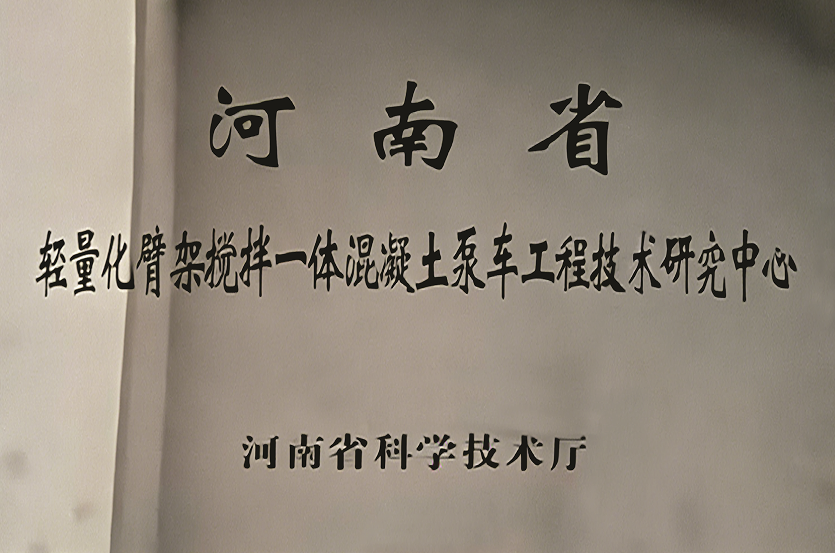 河南省
轻量化臂架搅拌一体混凝土泵车工程技术研究中心
河南省科学技术厅